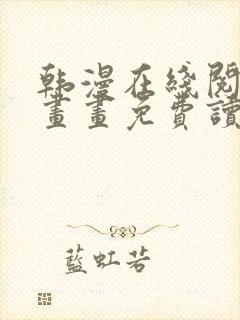 韩漫在线閱
畫畫免費讀
藍虹若